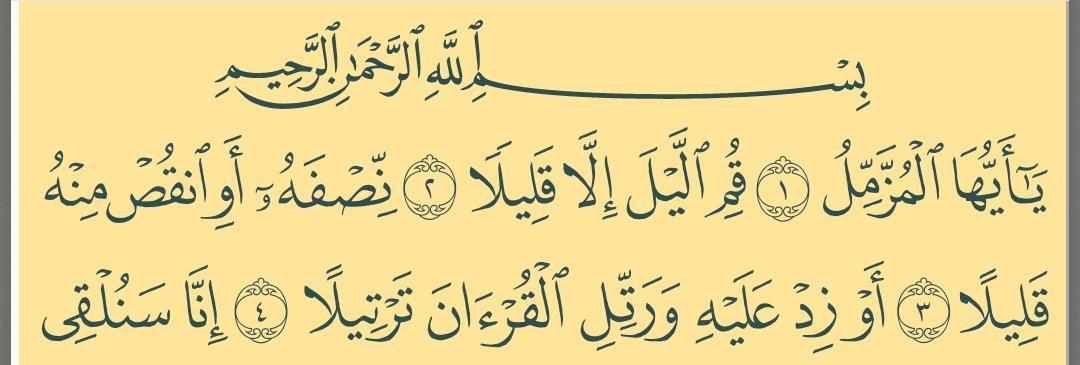 بِسْمِ ٱللَّهِ ٱلرَّحْمَٰنِ ٱلرَّحِيمِ
يَـٰٓأَيُّهَا ٱلْمُزَّمِّلُ ١ قُمِ ٱلَّيْلَ إِلَّا قَلِيلًا ٢ نِّصْفَهُۥٓ أَوِ ٱنقُصْ مِنْهُ
قَلِيلًا ٣ أَوْ زِدْ عَلَيْهِ وَرَتِّلِ ٱلْقُرْءَانَ تَرْتِيلًا ٤ إِنَّا سَنُلْقِى